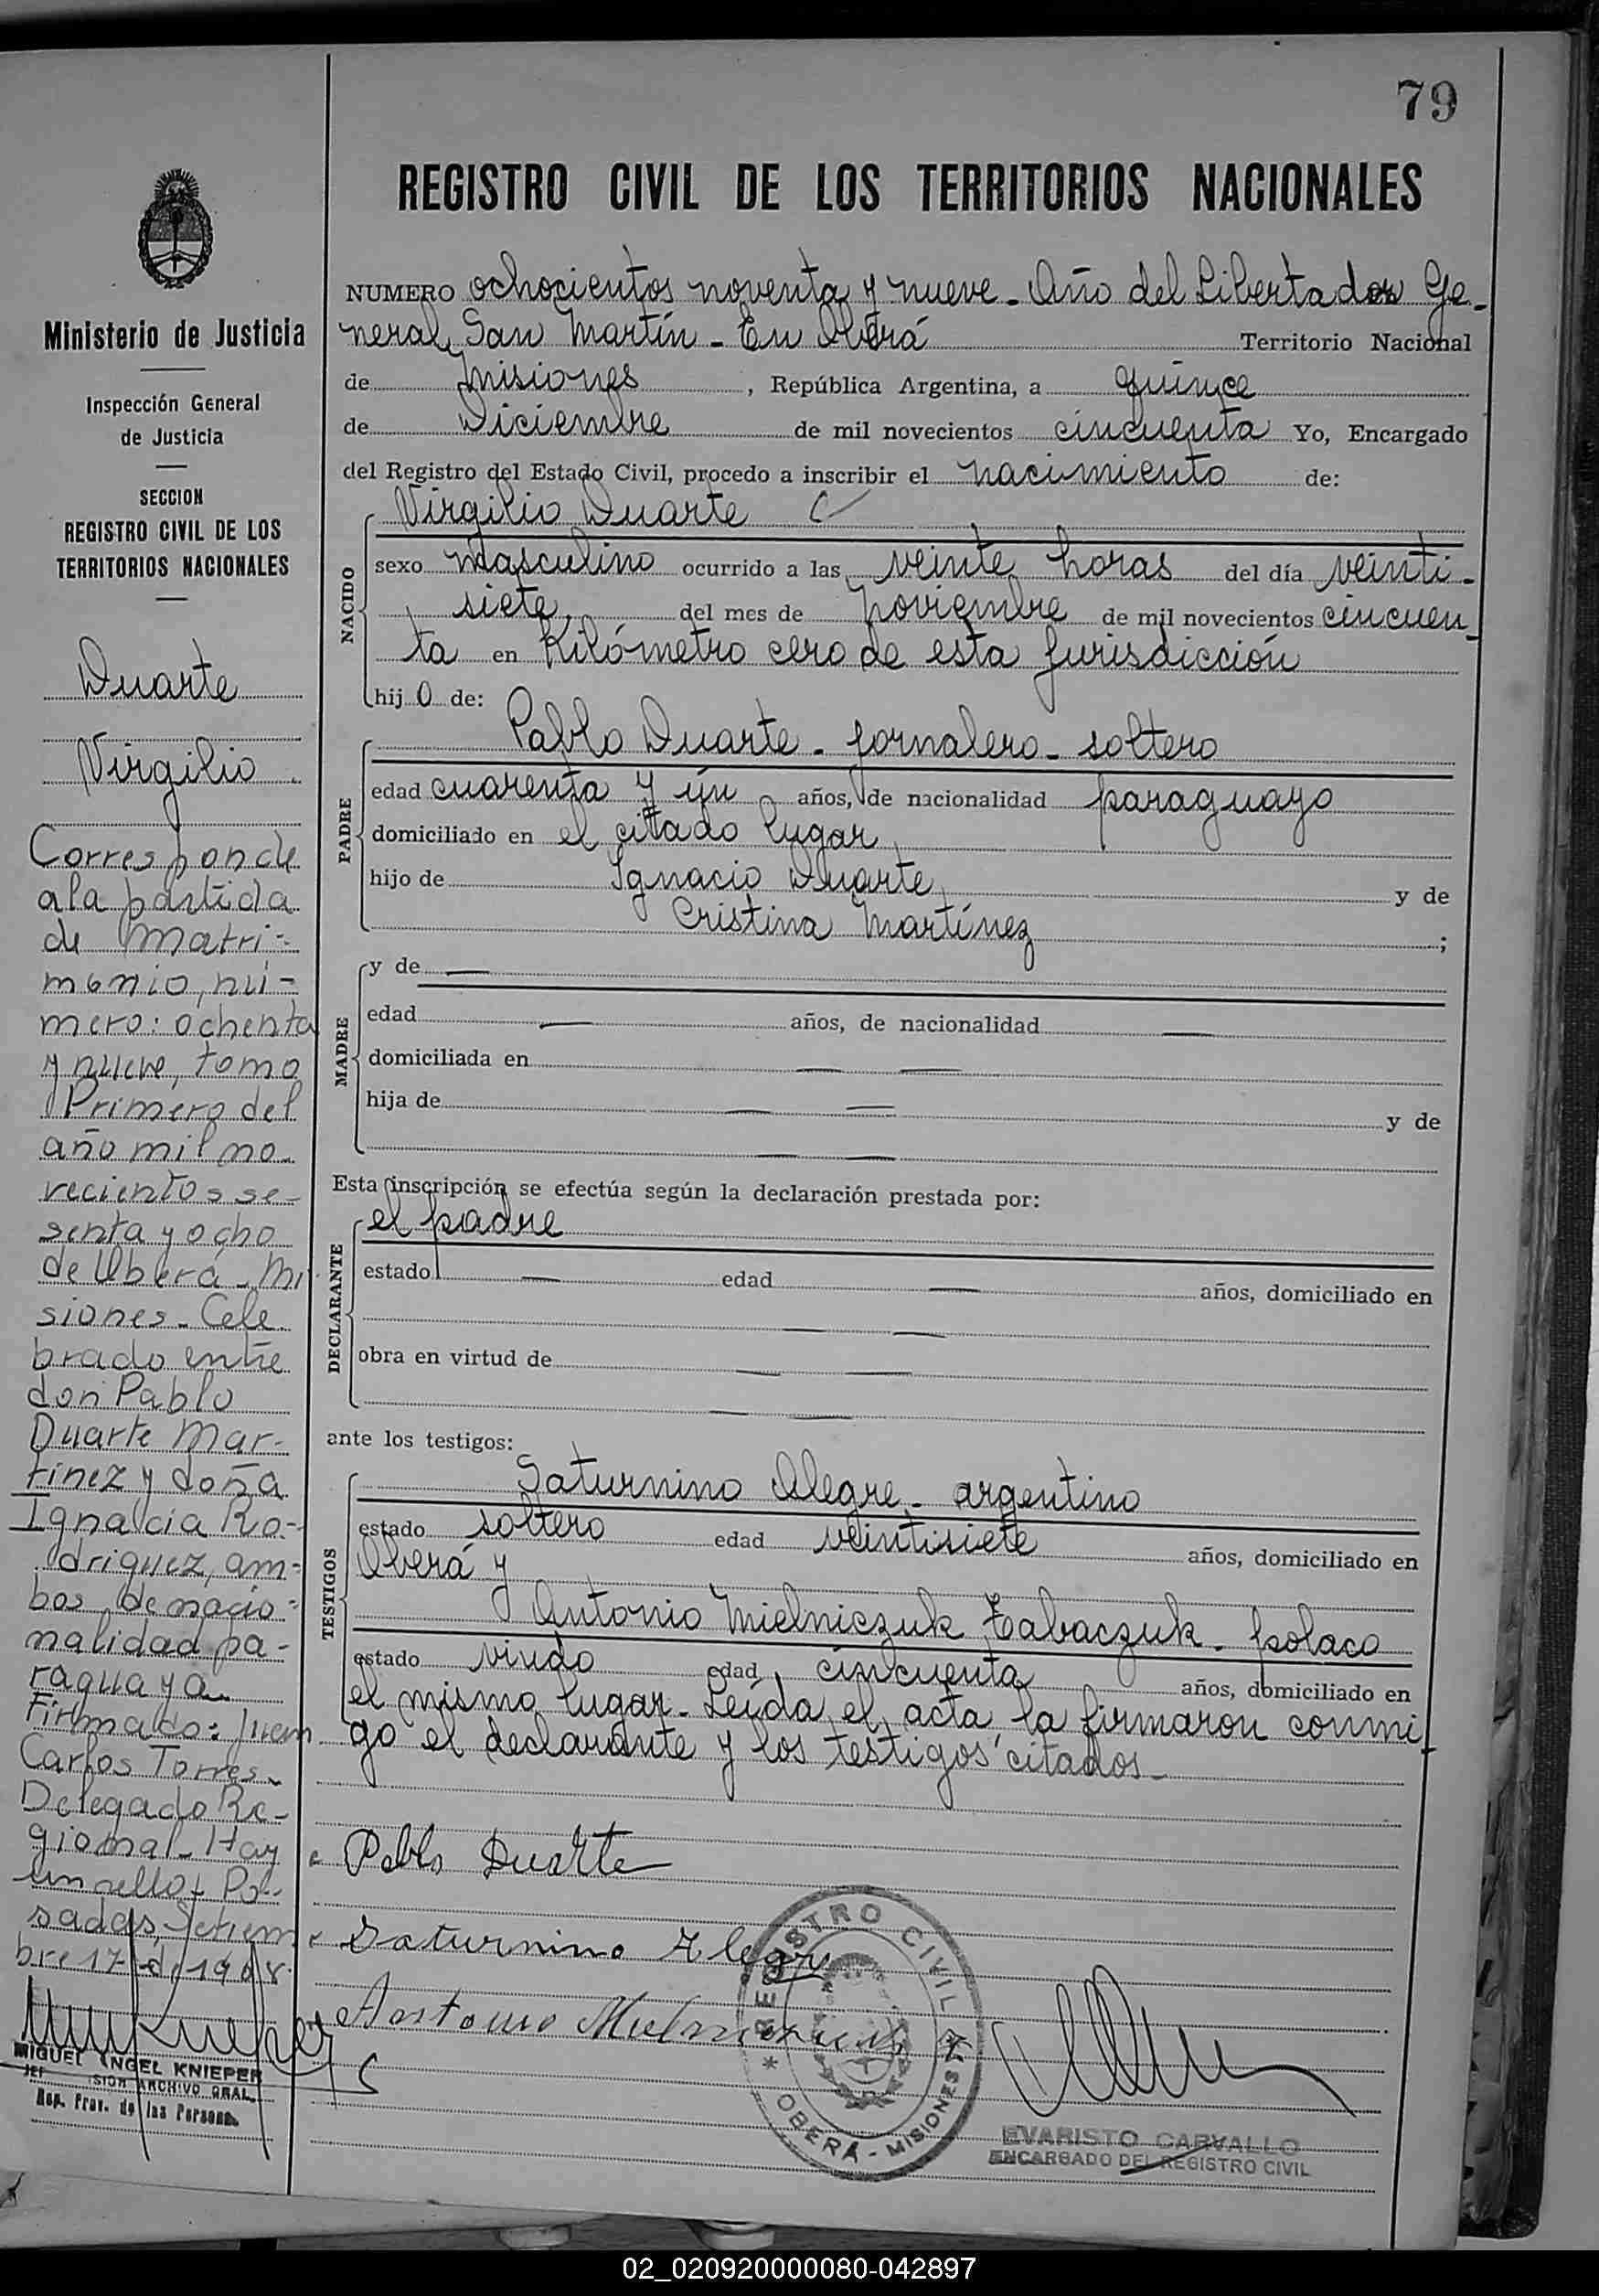 79
REGISTRO CIVIL DE LOS TERRITORIOS NACIONALES
Ministerio de Justicia
Inspección General
de Justicia
SECCION
REGISTRO CIVIL DE LOS
TERRITORIOS NACIONALES
Duarte
Virgilio
Corresponde
a la partida
de Matri-
monio, nú-
mero: ochenta
y nueve, tomo
Primero del
año mil no-
vecientos se-
senta y ocho
de Oberá - Mi
siones - Cele
brado entre
don Pablo
Duarte Mar-
tinez y doña
Ignacia Ro-
driguez, am-
bos de nacio-
nalidad pa-
raguaya.
Firmado: Juan
Carlos Torres.
Delegado Re-
gional - Hay
un sello - Po-
sadas, Setiem
bre 17 de 1968.
MIGUEL ANGEL KNIEPER
JEF SION ARCHIVO GRAL.
Reg. Prov. de las Personas
NUMERO ochocientos noventa y nueve - Año del Libertador Ge-
neral San Martín - En Oberá Territorio Nacional
de Misiones, República Argentina, a quince
de Diciembre de mil novecientos cincuenta Yo, Encargado
del Registro del Estado Civil, procedo a inscribir el nacimiento de:
NACIDO
Virgilio Duarte
sexo masculino ocurrido a las veinte horas del día veinti-
siete del mes de noviembre de mil novecientos cincuen-
ta en Kilómetro cero de esta jurisdicción
hijo de:
PADRE
Pablo Duarte - jornalero - soltero
edad cuarenta y un años, de nacionalidad paraguayo
domiciliado en el citado lugar
hijo de Ignacio Duarte y de
Cristina Martínez ;
MADRE
y de —
edad — años, de nacionalidad —
domiciliada en — —
hija de — — y de
— —
Esta inscripción se efectúa según la declaración prestada por:
DECLARANTE
el padre
estado — edad — años, domiciliado en
— —
obra en virtud de — —
— —
ante los testigos:
TESTIGOS
Saturnino Alegre - argentino
estado soltero edad veintisiete años, domiciliado en
Oberá y
Antonio Mielniczuk Tabaczuk - polaco
estado viudo edad cincuenta años, domiciliado en
el mismo lugar - Leída el acta la firmaron conmi-
go el declarante y los testigos citados -
Pablo Duarte
Saturnino Alegre
Antonio Mielniczuk
REGISTRO CIVIL
* OBERÁ - MISIONES *
EVARISTO CARVALLO
ENCARGADO DEL REGISTRO CIVIL
02_020920000080-042897